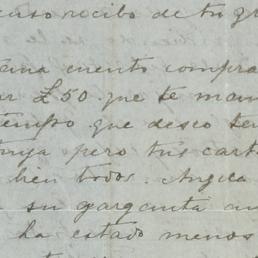 recibo de tu
cuento compra
£50 que te man
tiempo que deseo ten
tuya pero tus cart
bien todos. Angela
su garganta au
ha estado menos